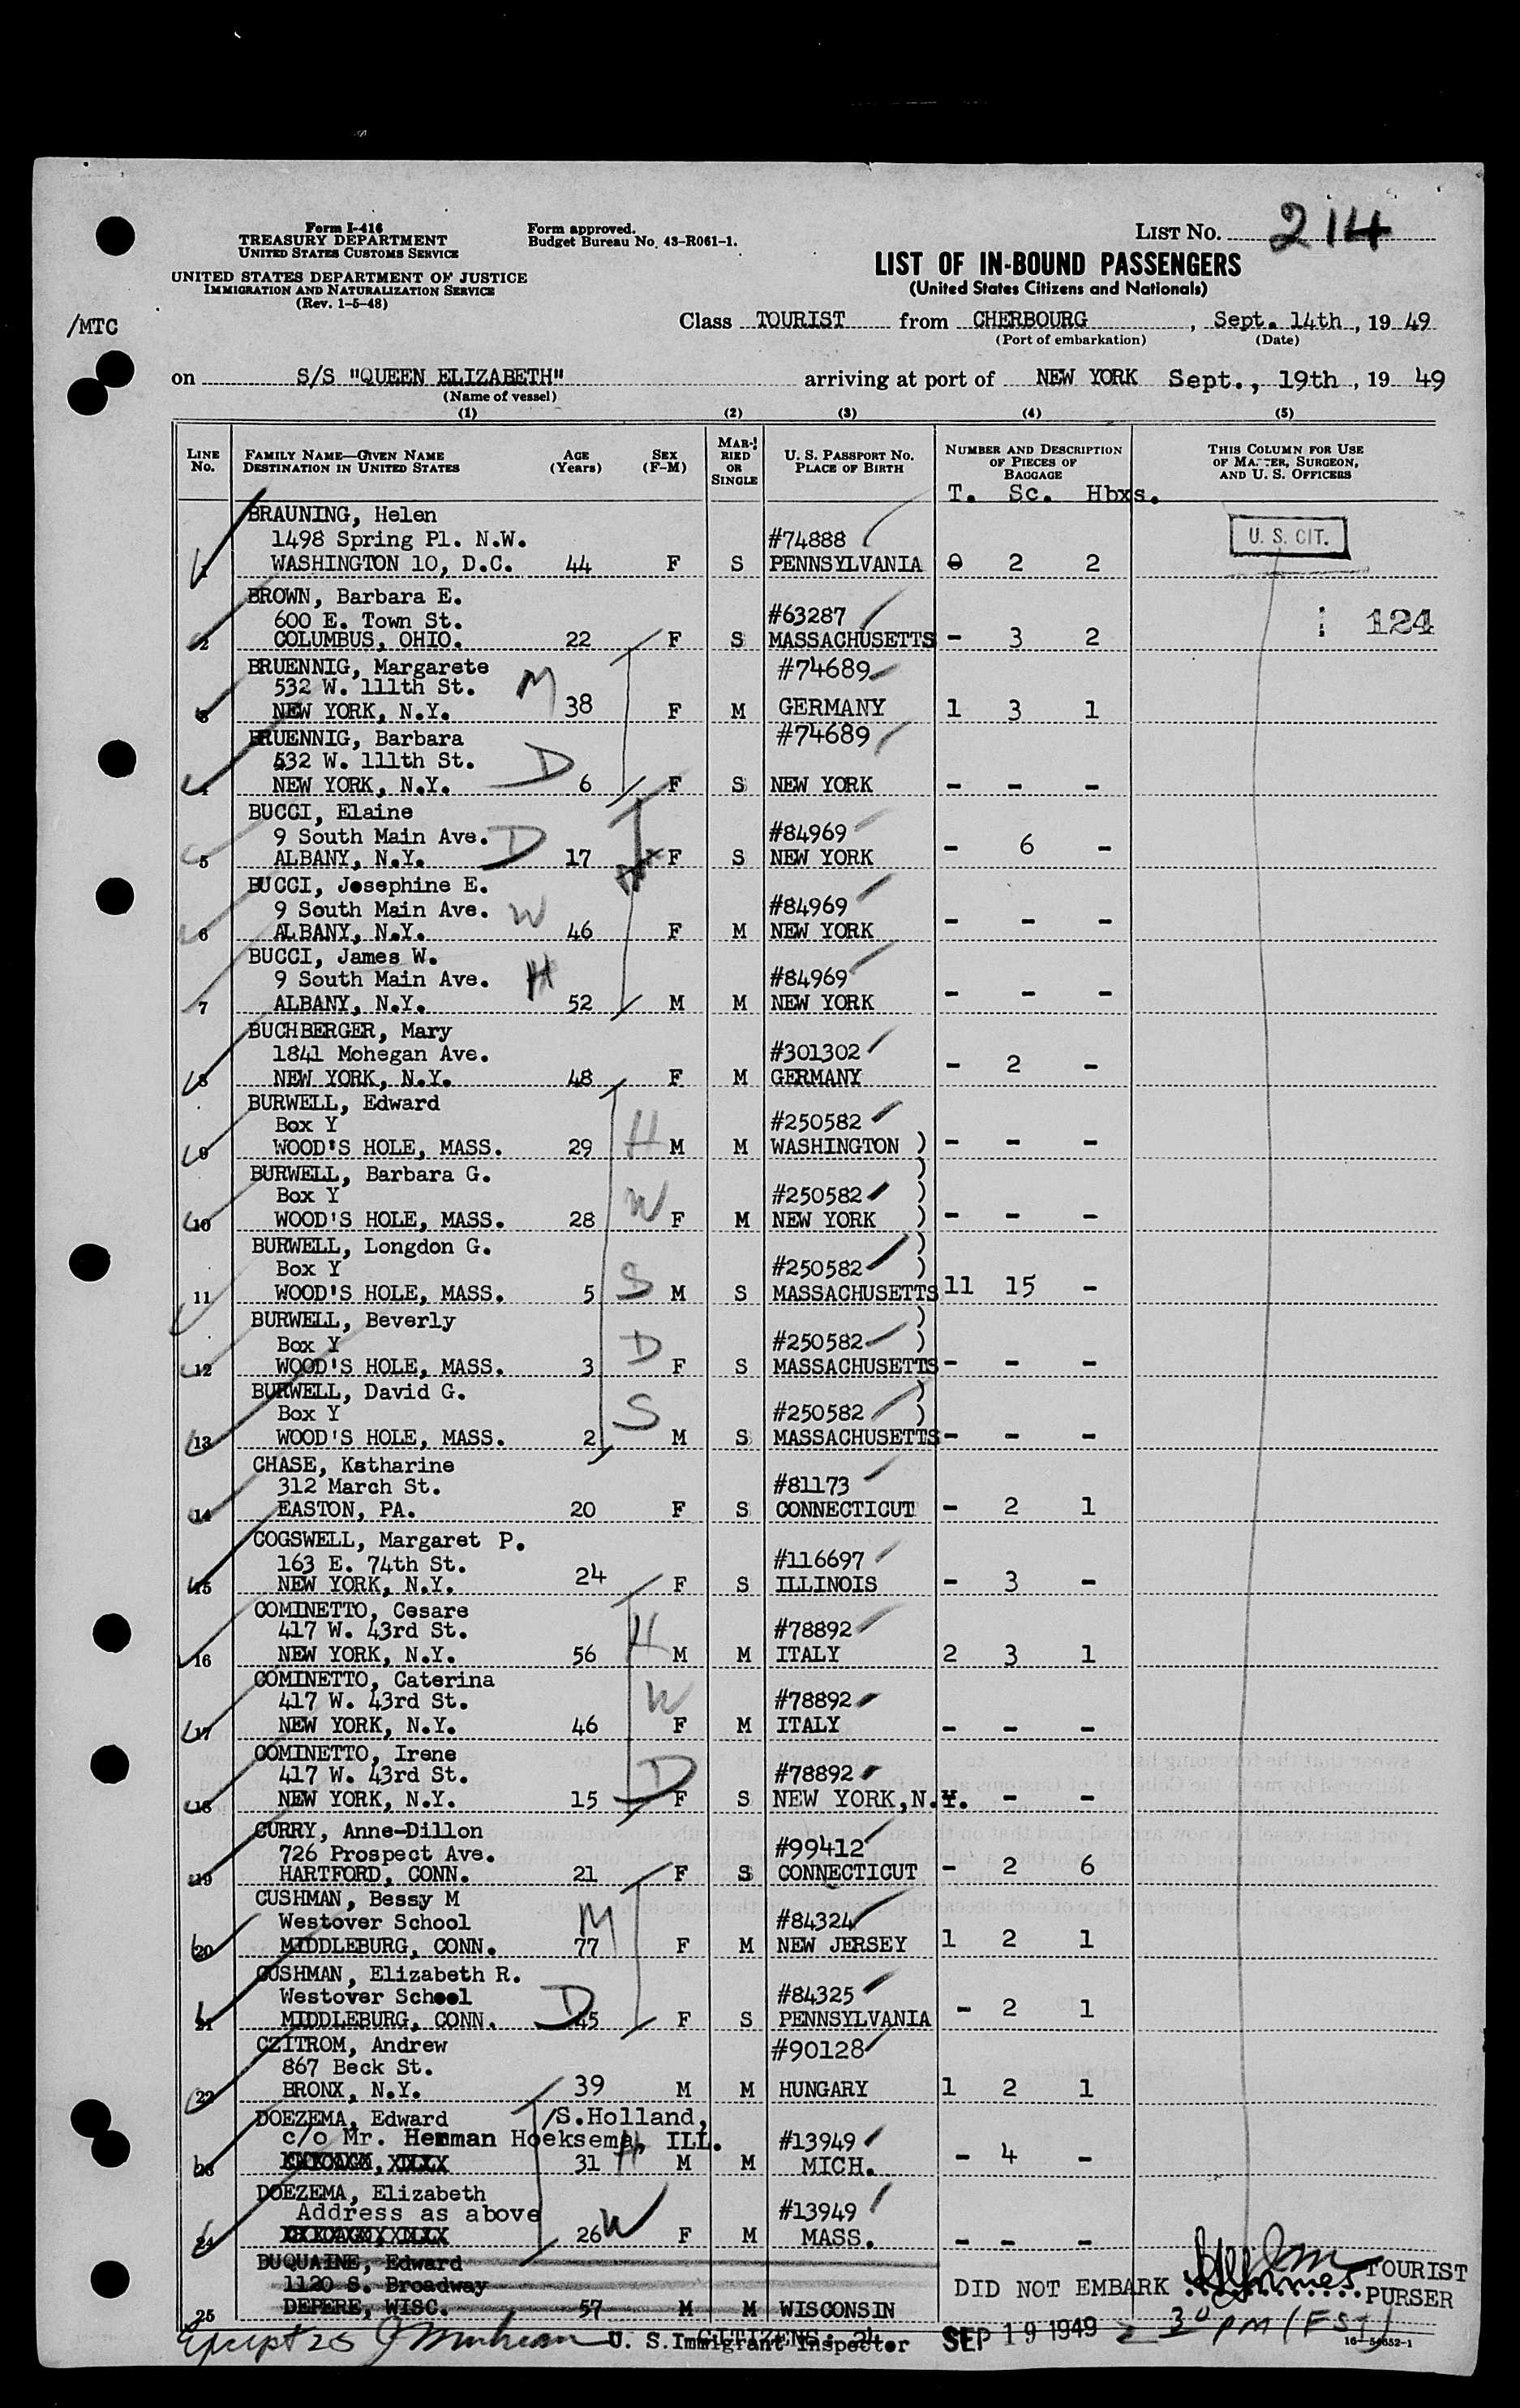 Form I-416
TREASURY DEPARTMENT
UNITED STATES CUSTOMS SERVICE
UNITED STATES DEPARTMENT OF JUSTICE
IMMIGRATION AND NATURALIZATION SERVICE
(Rev. 1-5-48)
Form approved.
Budget Bureau No. 43-R061-1.
LIST No. 214
LIST OF IN-BOUND PASSENGERS
(United States Citizens and Nationals)
/MTC
Class TOURIST from CHERBOURG, Sept. 14th, 19 49
(Port of embarkation) (Date)
on S/S "QUEEN ELIZABETH" arriving at port of NEW YORK Sept., 19th, 19 49
(Name of vessel)
(1) (2) (3) (4) (5)
LINE No. FAMILY NAME—GIVEN NAME DESTINATION IN UNITED STATES AGE (Years) SEX (F-M) MARRIED OR SINGLE U. S. PASSPORT No. PLACE OF BIRTH NUMBER AND DESCRIPTION OF PIECES OF BAGGAGE THIS COLUMN FOR USE OF MASTER, SURGEON, AND U. S. OFFICERS
T. Sc. Hbxs.
BRAUNING, Helen
1498 Spring Pl. N.W. #74888 U. S. CIT.
1 WASHINGTON 10, D.C. 44 F S PENNSYLVANIA 0 2 2
BROWN, Barbara E.
600 E. Town St. #63287 124
2 COLUMBUS, OHIO. 22 F S MASSACHUSETTS - 3 2
BRUENNIG, Margarete #74689
532 W. 111th St. M
3 NEW YORK, N.Y. 38 F M GERMANY 1 3 1
BRUENNIG, Barbara #74689
532 W. 111th St. D
4 NEW YORK, N.Y. 6 F S NEW YORK - - -
BUCCI, Elaine
9 South Main Ave. D #84969
5 ALBANY, N.Y. 17 F S NEW YORK - 6 -
BUCCI, Josephine E.
9 South Main Ave. W #84969
6 ALBANY, N.Y. 46 F M NEW YORK - - -
BUCCI, James W.
9 South Main Ave. H #84969
7 ALBANY, N.Y. 52 M M NEW YORK - - -
BUCHBERGER, Mary
1841 Mohegan Ave. #301302
8 NEW YORK, N.Y. 48 F M GERMANY - 2 -
BURWELL, Edward
Box Y #250582
9 WOOD'S HOLE, MASS. 29 H M M WASHINGTON ) - - -
BURWELL, Barbara G.
Box Y #250582 )
10 WOOD'S HOLE, MASS. 28 W F M NEW YORK ) - - -
BURWELL, Longdon G.
Box Y #250582 )
11 WOOD'S HOLE, MASS. 5 S M S MASSACHUSETTS 11 15 -
BURWELL, Beverly
Box Y #250582 )
12 WOOD'S HOLE, MASS. 3 D F S MASSACHUSETTS - - -
BURWELL, David G.
Box Y #250582 )
13 WOOD'S HOLE, MASS. 2 S M S MASSACHUSETTS - - -
CHASE, Katharine
312 March St. #81173
14 EASTON, PA. 20 F S CONNECTICUT - 2 1
COGSWELL, Margaret P.
163 E. 74th St. #116697
15 NEW YORK, N.Y. 24 F S ILLINOIS - 3 -
COMINETTO, Cesare
417 W. 43rd St. #78892
16 NEW YORK, N.Y. 56 H M M ITALY 2 3 1
COMINETTO, Caterina
417 W. 43rd St. #78892
17 NEW YORK, N.Y. 46 W F M ITALY - - -
COMINETTO, Irene
417 W. 43rd St. #78892
18 NEW YORK, N.Y. 15 D F S NEW YORK, N.Y. - -
CURRY, Anne-Dillon
726 Prospect Ave. #99412
19 HARTFORD, CONN. 21 F S CONNECTICUT - 2 6
CUSHMAN, Bessy M
Westover School M #84324
20 MIDDLEBURG, CONN. 77 F M NEW JERSEY 1 2 1
CUSHMAN, Elizabeth R.
Westover School D #84325
21 MIDDLEBURG, CONN. 45 F S PENNSYLVANIA - 2 1
CZITROM, Andrew #90128
867 Beck St.
22 BRONX, N.Y. 39 M M HUNGARY 1 2 1
DOEZEMA, Edward /S.Holland,
c/o Mr. Herman Hoeksema, ILL. #13949
23 31 H M M MICH. - 4 -
DOEZEMA, Elizabeth
Address as above #13949
24 26 W F M MASS. - - -
DUQUAINE, Edward
1120 S. Broadway DID NOT EMBARK TOURIST
25 DEPERE, WISC. 57 M M WISCONSIN PURSER
Except 25 U. S. Immigrant Inspector CITIZENS: 24 SEP 19 1949 2 30 PM (EST)
16-54652-1